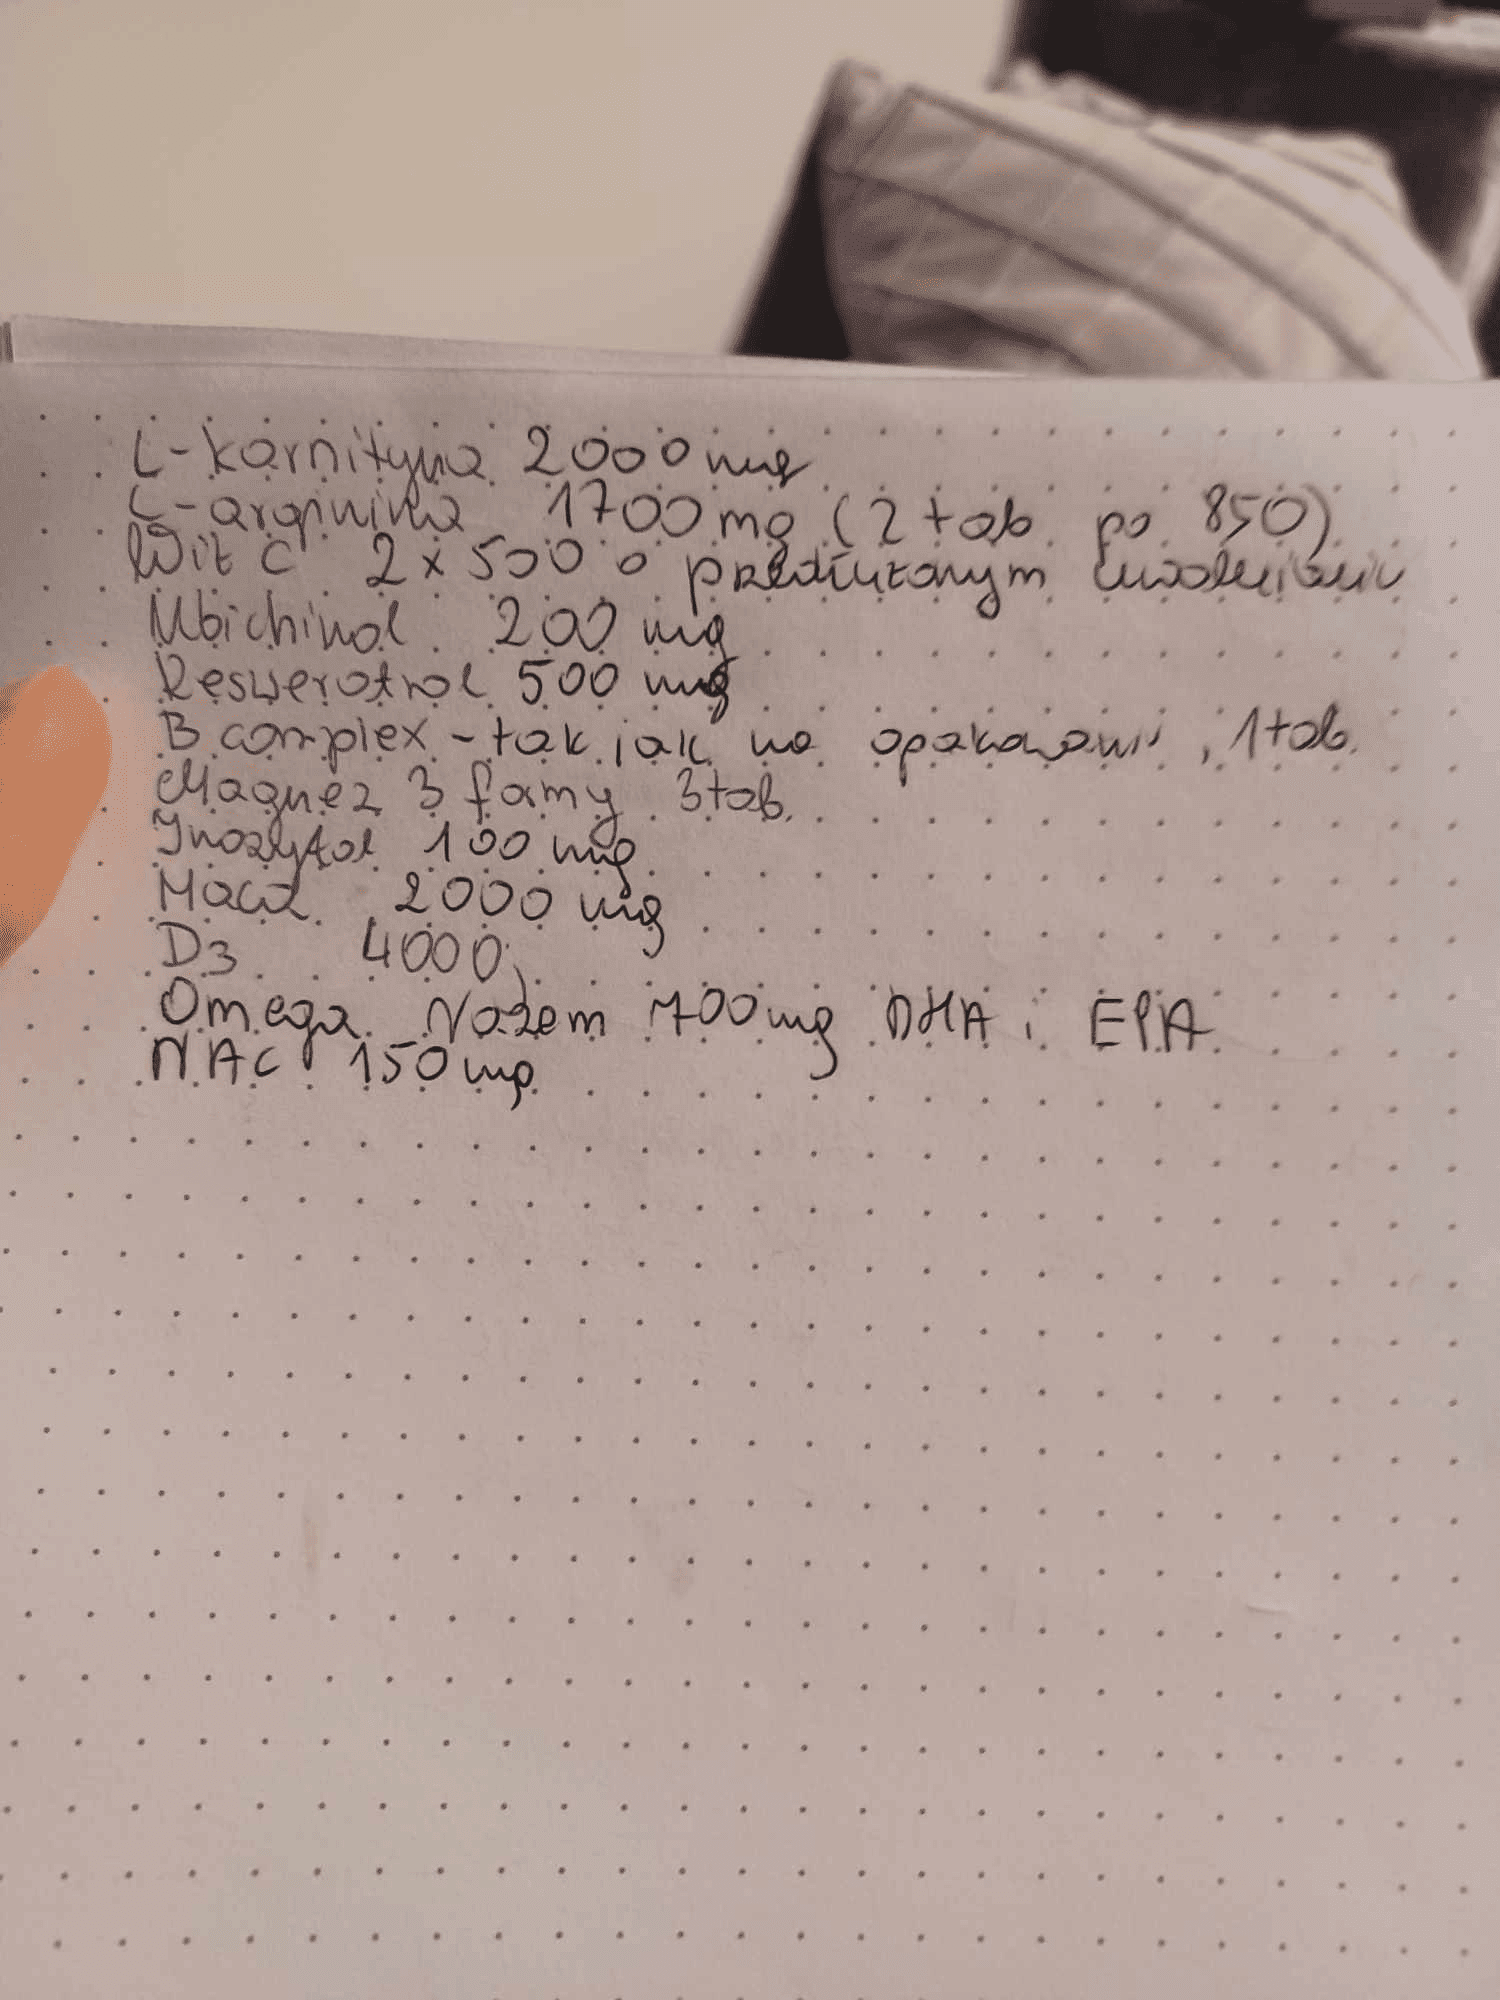 L-karnityna 2000 mg
L-arginina 1700 mg (2 tab po 850)
Wit C 2x500 o przedłużonym uwalnianiu
Ubichinol 200 mg
Reswerotrol 500 mg
B complex - tak jak na opakowaniu, 1 tab.
Magnez 3 formy 3 tab.
Inozytol 100 mg
Maca 2000 mg
D3 4000
Omega Razem 700 mg DHA i EPA
NAC 150 mg